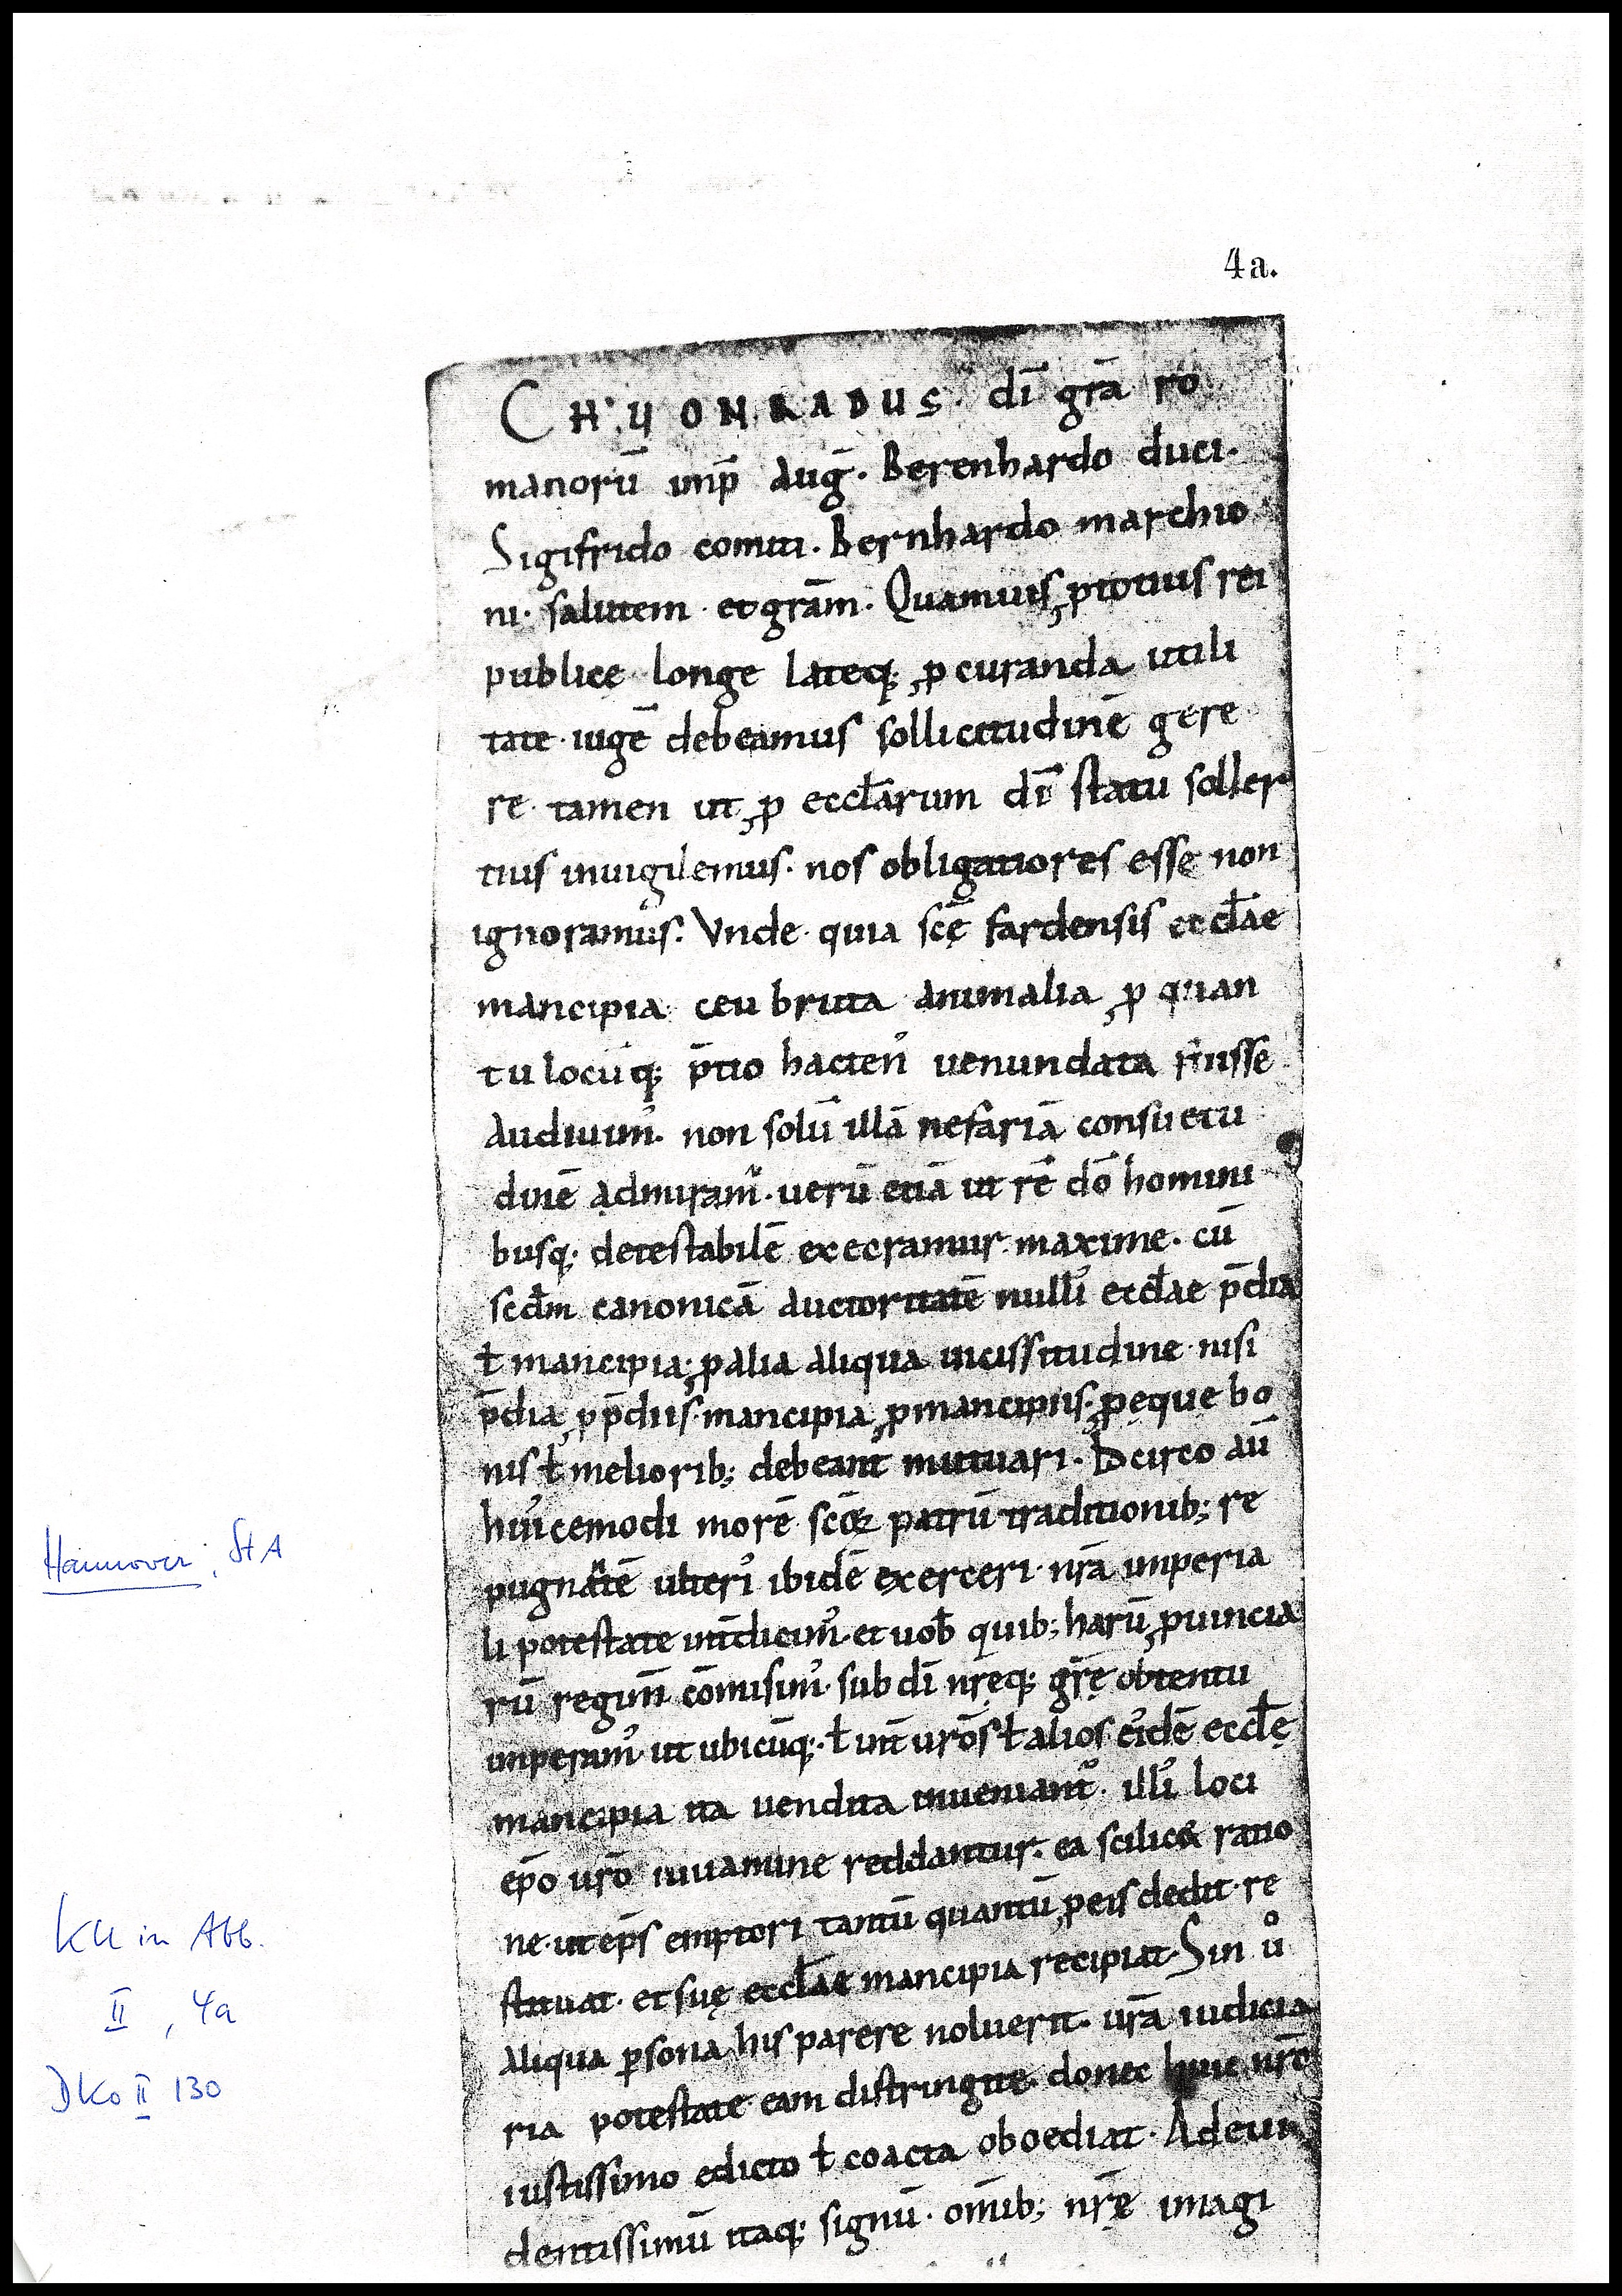 4a.
CHUONRADUS· dī grā ro
manorū imp̄ auḡ· Berenhardo duci·
Sigifrido comiti· Bernhardo marchio
ni· salutem et grām· Quamuis p totius rei
publicę longe lateq; p curanda utili
tate iugē debeamus sollicitudinē gere
re tamen ut p eccłarum dī statu soller
tius inuigilemus· nos obligatiores esse non
ignoramus· Vnde quia scę̄ fardensis eccłae
mancipia ceu bruta animalia p quan
tulocūq; p̄tio hacten᾽ uenundata fuisse
audiuim᾽· non solū illā nefariā consuetu
dinē admiram᾽· uerū etiā ut rē dō homini
busq; detestabilē execramur· maxime· cū
scđm canonicā auctoritatē nulli᾽ eccłae p̄dia
ł mancipia· p alia aliqua uicissitudine nisi
p̄dia p p̄diis· mancipia p mancipiis· p ęque bo
nis ł meliorib; debeant mutuari· Idcirco aū
hui᾽cemodi morē scōꝝ patrū traditionib; re
pugnātē ulteri᾽ ibidē exerceri· nr̄a imperia
li potestate int̄dicim᾽· et uob̄ quib; harū puincia
rū regim̄ cōmisim᾽· sub dī nr̄ęq; gr̄ę obtentu
imperam᾽· ut ubicūq;· ł int̄ ur̄os ł alios ei᾽dē eccłę
mancipia ita uendita inueniant᾽· illi᾽ loci
ep̄o ur̄o iuuamine reddantur· ea scilicet ratio
ne· ut ep̄s emptori tantū quantū p eis dedit re
stituat· et suę eccłae mancipia recipiat· Sin ůͦ
aliqua psona his parere noluerit· ur̄a iudicia
ria potestate eam distringite· donec huic nr̄o
iustissimo edicto ł coacta oboediat· Ad eui
dentissimū itaq; signū· om̄ib; nr̄ę imagi
Hannover, StA
KU in Abb.
II, 4a
DKo II 130